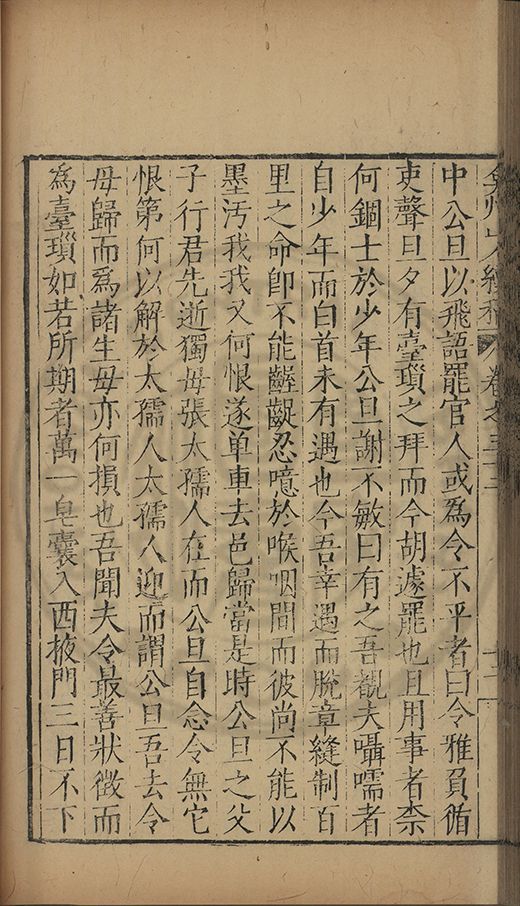 中公旦以飛語罷官人或為令不平者曰令雅負循
吏聲旦夕有臺瑣之拜而今胡遽罷也且用事者柰
何錮士於少年公旦謝不敏曰有之吾觀夫囁嚅者
自少年而白首未有遇也今吾幸遇而脫章縫制百
里之命即不能齷齪忍噫於喉咽間而彼尚不能以
墨汚我我又何恨遂单車去邑歸當是時公旦之父
子行君先逝獨母張太孺人在而公旦自念令無它
恨第何以解於太孺人太孺人迎而謂公旦吾去令
母歸而為諸生母亦何損也吾聞夫令最善狀徵而
為臺瑣如若所期者萬一皂囊入西掖門三日不下